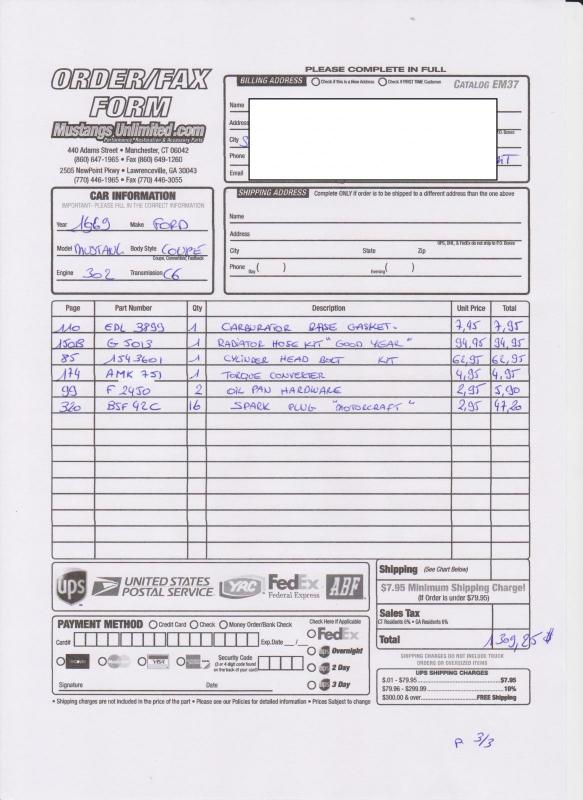 ORDER/FAX
FORM
Mustangs Unlimited.com
Performance, Restoration & Accessory Parts
440 Adams Street • Manchester, CT 06042
(860) 647-1965 • Fax (860) 649-1260
2505 NewPoint Pkwy • Lawrenceville, GA 30043
(770) 446-1965 • Fax (770) 446-3055
PLEASE COMPLETE IN FULL
BILLING ADDRESS Check if this is a New Address Check if FIRST TIME Customer CATALOG EM37
Name
Address
P.O. Boxes
City
Phone
Email
CAR INFORMATION
IMPORTANT- PLEASE FILL IN THE CORRECT INFORMATION
Year 1969 Make FORD
Model MUSTANG Body Style COUPÉ
Coupe, Convertible, Fastback
Engine 302 Transmission C6
SHIPPING ADDRESS Complete ONLY if order is to be shipped to a different address than the one above
Name
Address
UPS, DHL, & FedEx do not ship to P.O. Boxes
City State Zip
Phone Day ( ) Evening ( )
Page Part Number Qty Description Unit Price Total
110 EDL 3899 1 CARBURATOR BASE GASKET. 7,95 7,95
150B G 5013 1 RADIATOR HOSE KIT "GOOD YEAR" 94,95 94,95
85 1543601 1 CYLINDER HEAD BOLT KIT 62,95 62,95
174 AMK 751 1 TORQUE CONVERTER 4,95 4,95
99 F 2450 2 OIL PAN HARDWARE 2,95 5,90
320 BSF 42C 16 SPARK PLUG "MOTORCRAFT" 2,95 47,20
ups UNITED STATES POSTAL SERVICE YRC FedEx Federal Express ABF
Shipping (See Chart Below)
$7.95 Minimum Shipping Charge!
(If Order is under $79.95)
Sales Tax
CT Residents 6% • GA Residents 6%
Total 1309,85 $
PAYMENT METHOD Credit Card Check Money Order/Bank Check
Card# Exp.Date __/__
Security Code
(3 or 4 digit code found on the back of your card)
DISCOVER MasterCard VISA
Signature Date
Check Here If Applicable
FedEx
ups Overnight
ups 2 Day
ups 3 Day
SHIPPING CHARGES DO NOT INCLUDE TRUCK
ORDERS OR OVERSIZED ITEMS
UPS SHIPPING CHARGES
$.01 - $79.95 $7.95
$79.96 - $299.99 10%
$300.00 & over FREE Shipping
* Shipping charges are not included in the price of the part • Please see our Policies for detailed information • Prices Subject to Change
P 3/3